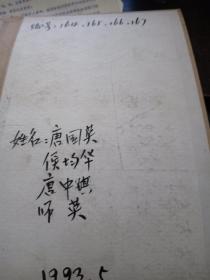 编号：164、165、166、167
姓名：唐国英
侯均华
唐中兴
师英
1993.5